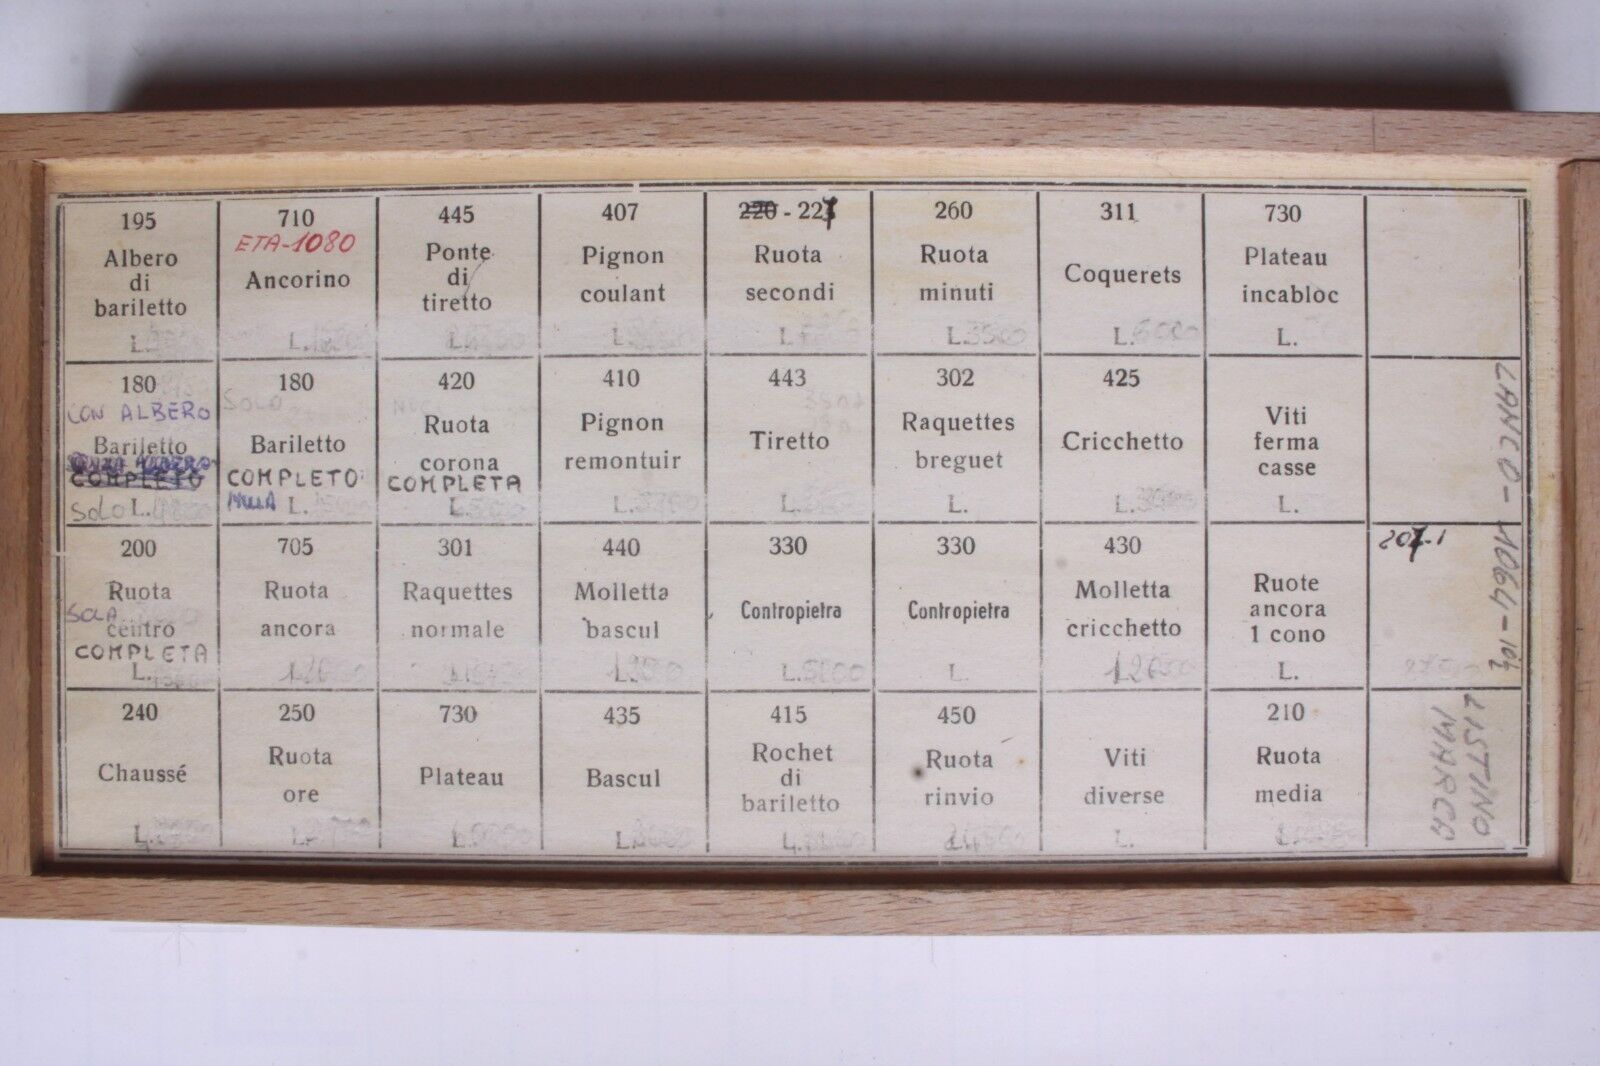 195
Albero
di
bariletto
L.
710
ETA-1080
Ancorino
L.
445
Ponte
di
tiretto
L.
407
Pignon
coulant
L.
220 - 227
Ruota
secondi
L.
260
Ruota
minuti
L. 3500
311
Coquerets
L. 6000
730
Plateau
incabloc
L.
180
CON ALBERO
Bariletto
COMPLETO
SOLO L.
180
SOLO
Bariletto
COMPLETO
L.
420
Ruota
corona
COMPLETA
L.
410
Pignon
remontuir
L.
443
Tiretto
L.
302
Raquettes
breguet
L.
425
Cricchetto
L.
Viti
ferma
casse
L.
200
Ruota
SOLA
centro
COMPLETA
L.
705
Ruota
ancora
L.
301
Raquettes
normale
L.
440
Molletta
bascul
L.
330
Contropietra
L.
330
Contropietra
L.
430
Molletta
cricchetto
L.
Ruote
ancora
1 cono
L.
207-1
240
Chaussé
L.
250
Ruota
ore
L.
730
Plateau
L.
435
Bascul
L.
415
Rochet
di
bariletto
L.
450
Ruota
rinvio
L.
Viti
diverse
L.
210
Ruota
media
L.
LANCO - 1064 - 10½
LISTINO
MARCA